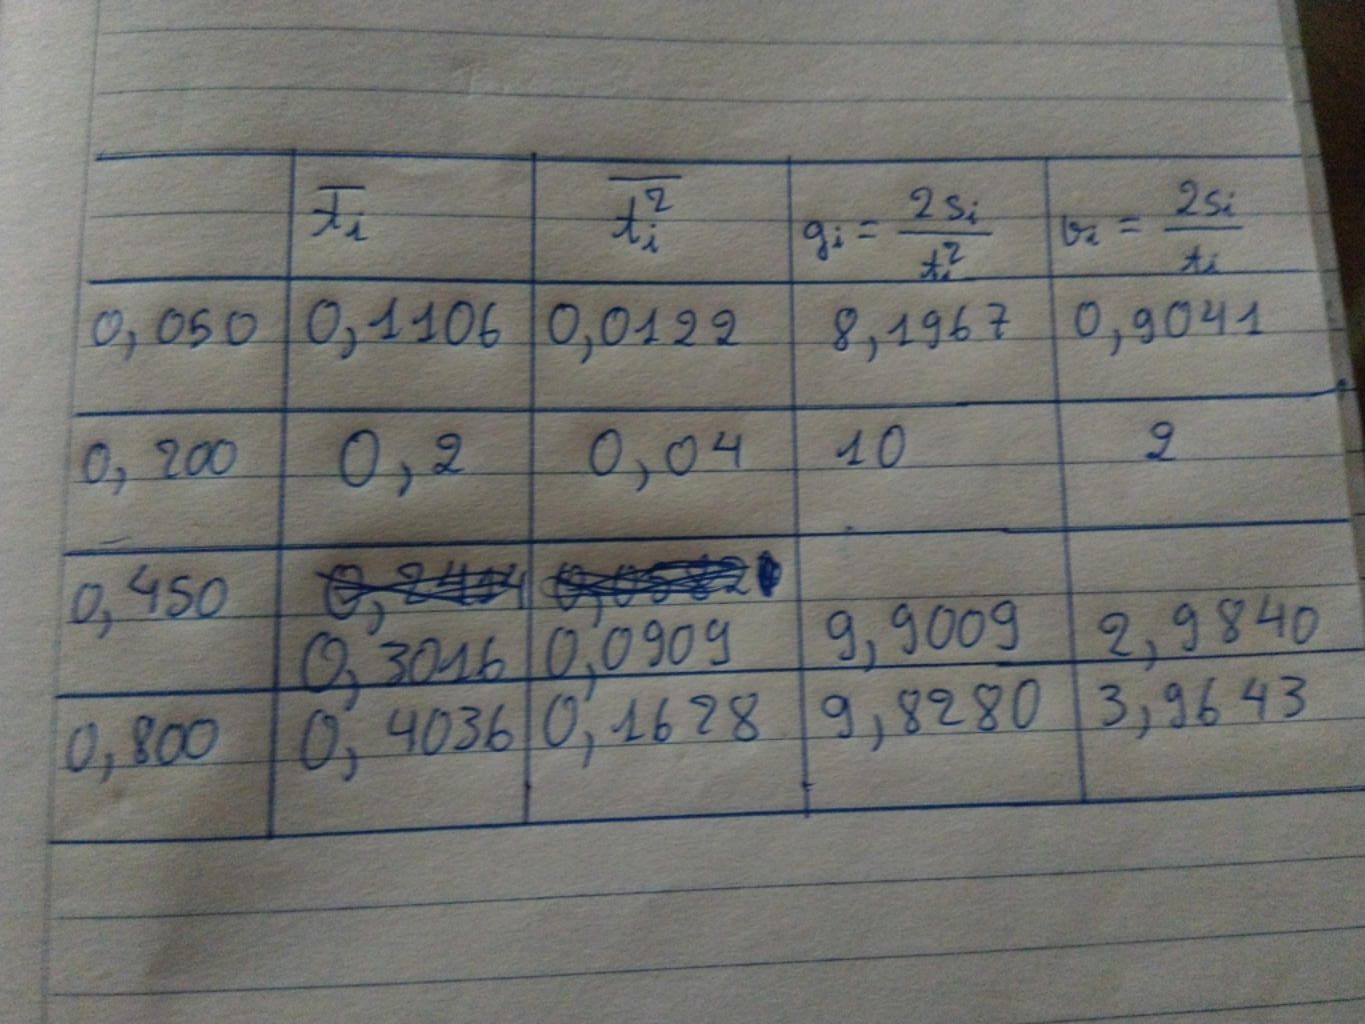 t̅ᵢ t̅ᵢ² gᵢ = 2sᵢ/tᵢ² vᵢ = 2sᵢ/tᵢ
0,050 0,1106 0,0122 8,1967 0,9041
0,200 0,2 0,04 10 2
0,450
0,3016 0,0909 9,9009 2,9840
0,800 0,4036 0,1628 9,8280 3,9643